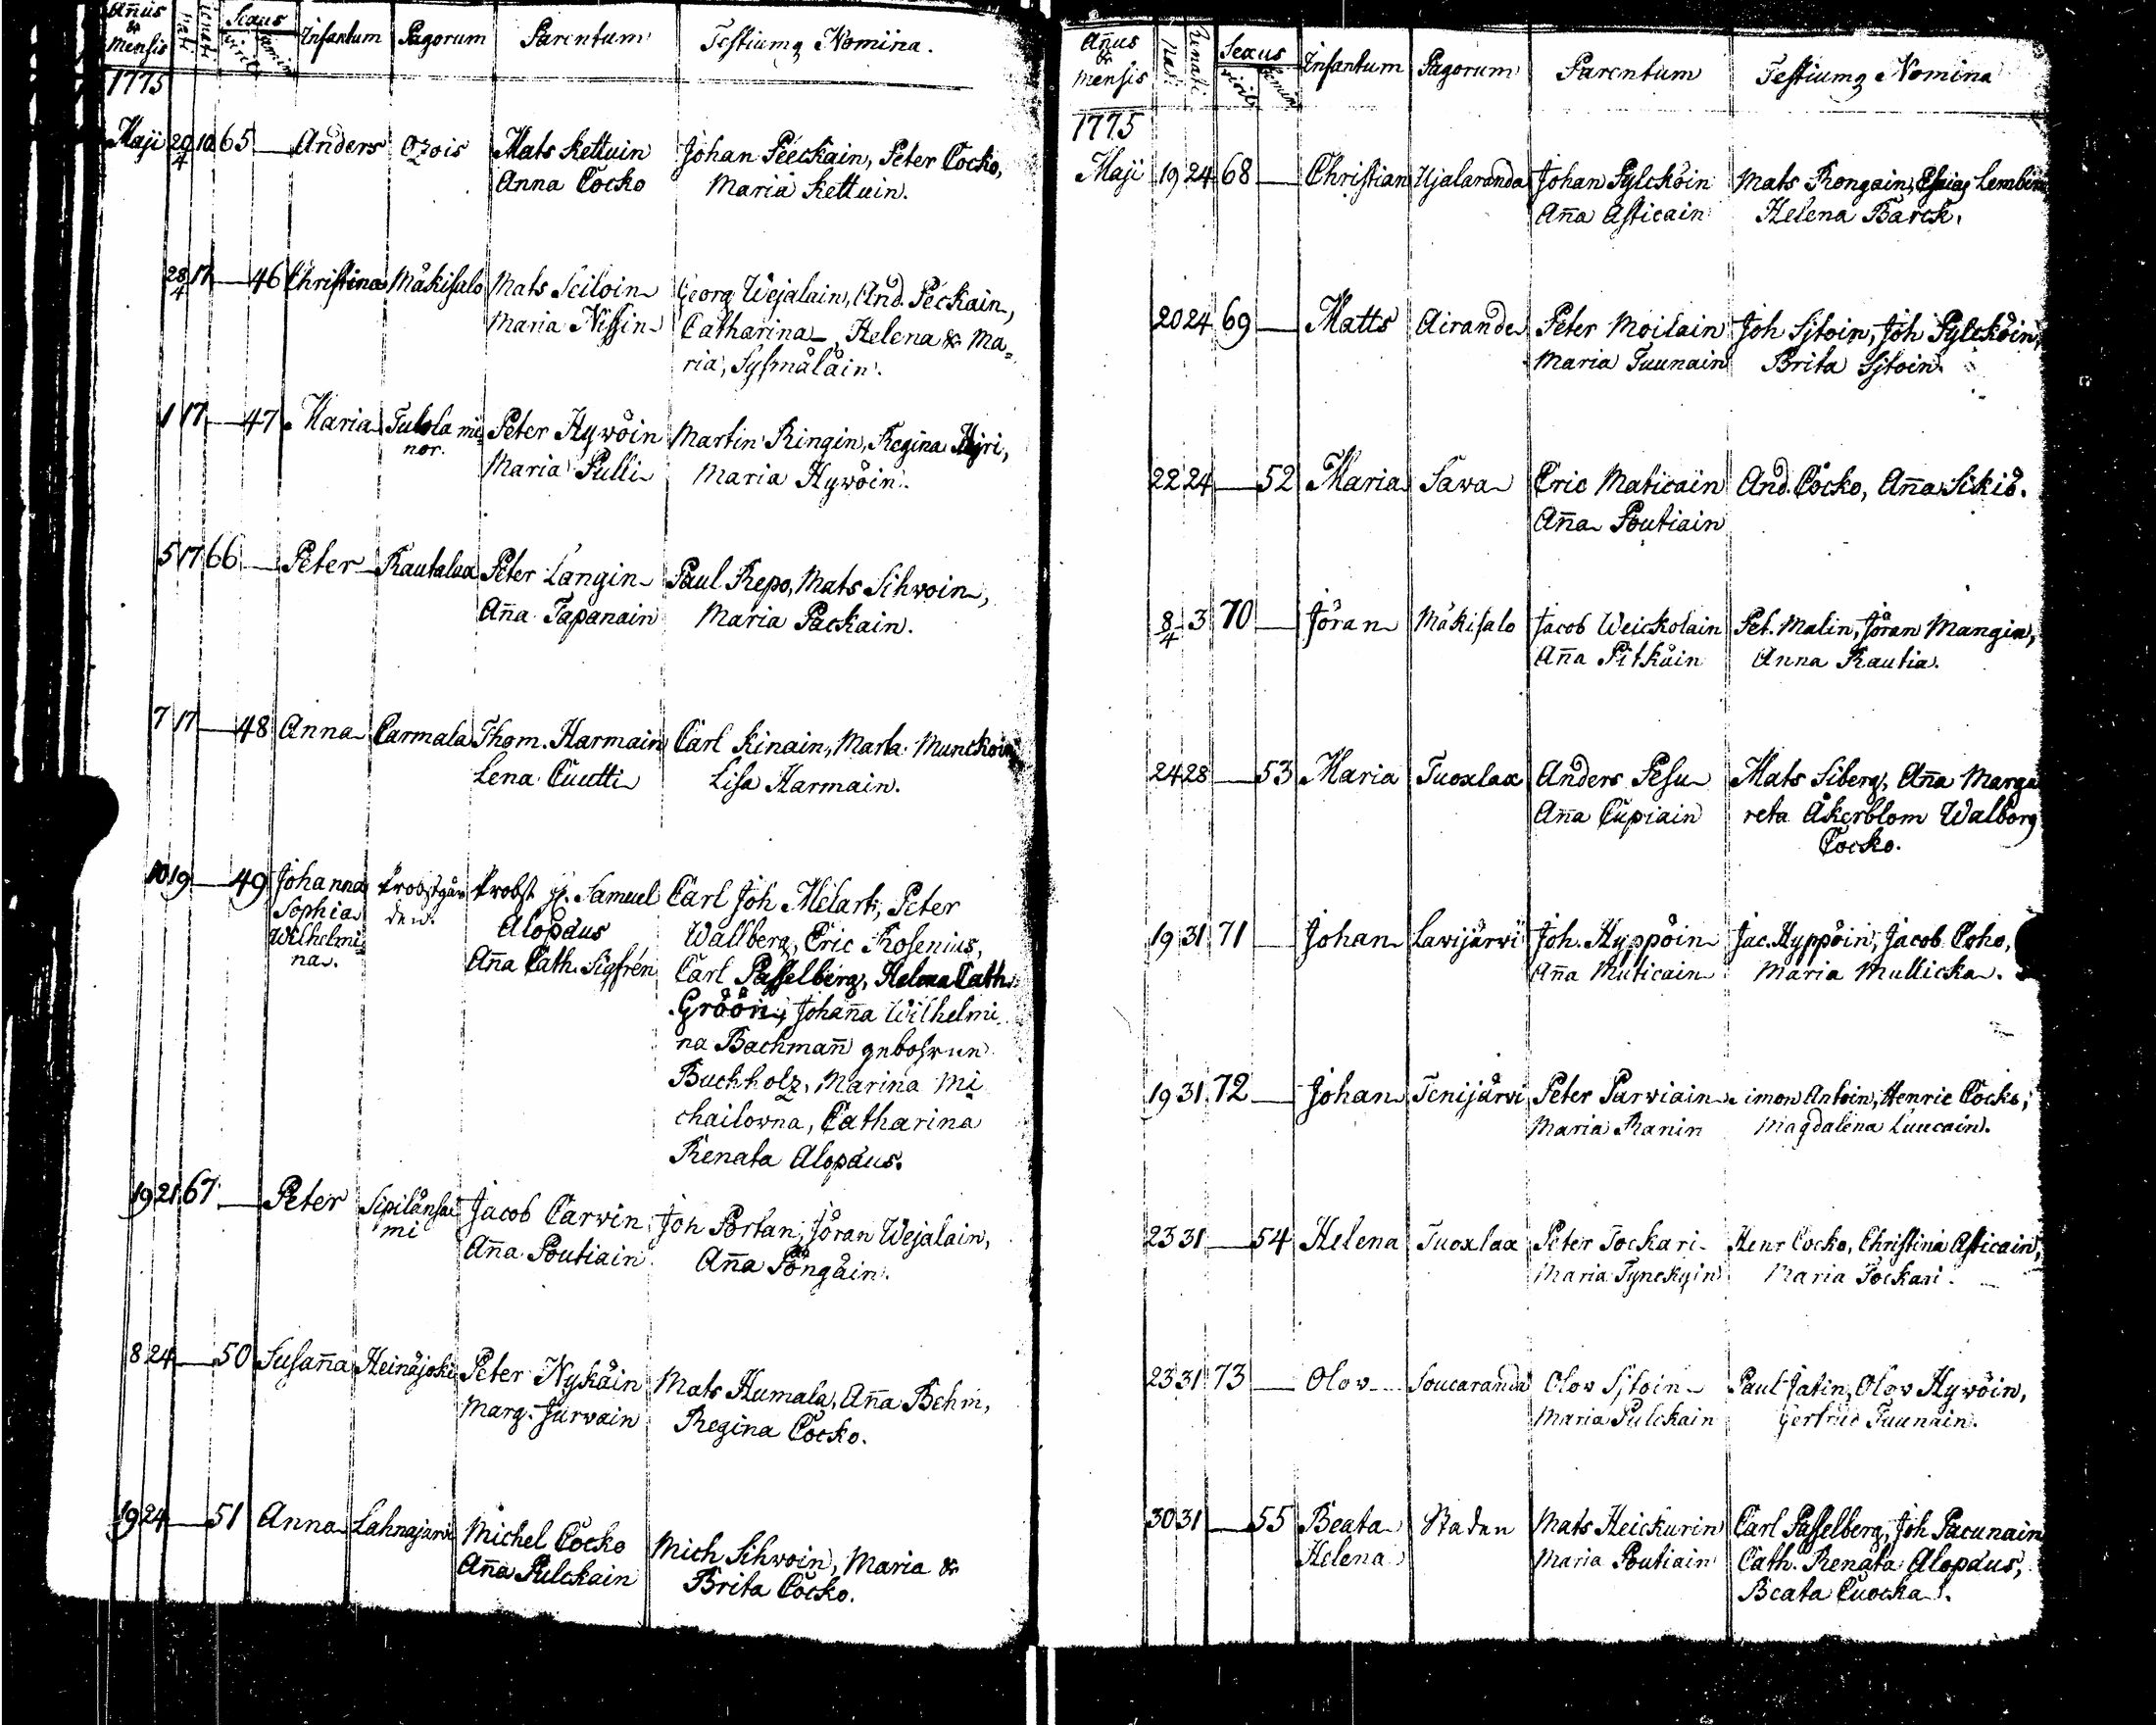 Añus & Mensis Nati Renati Sexus viril femin Infantum Pagorum Parentum Testiumq Nomina.
1775
Maji 29/4 10 65 — Anders Ozois Mats Kettuin Johan Peeckain, Peter Cocko,
Anna Cocko Maria Kettuin.
28/4 17 — 46 Christina Mäkisalo Mats Seiloin Georg Wejalain, And. Peckain,
Maria Nissin Catharina, Helena & Ma=
ria, Sysmäläin.
1 17 — 47 Maria Tulola mi Peter Hywöin Martin Ringin, Regina
nor. Maria Pulli Maria Hywöin.
5 17 66 — Peter Rautalax Peter Langin Paul Repo, Mats Sihvoin,
Aña Tapanain Maria Packain.
7 17 — 48 Anna Carmala Thom. Harmain Carl Kinain, Marta Munckoin
Lena Cuutti Lisa Harmain.
10 19 — 49 Johanna Probstgår Probst H. Samuel Carl Joh Melart, Peter
Sophia den. Alopæus Wallberg, Eric Rosenius,
Wilhelmi Aña Cath. Sigfrén Carl Passelberg, Helena Cath
na. Gröön, Johaña Wilhelmi
na Bachmañ gebohrne
Buchholz, Marina Mi
chailovna, Catharina
Renata Alopæus.
19 21 67 — Peter Sipilänsal Jacob Carvin Joh Portan, Jöran Wejalain,
mi Aña Poutiain Aña Pöngäin.
8 24 — 50 Susaña Heinäjoki Peter Nykäin Mats Humala, Aña Behm,
Marg. Jurvain Regina Cocko.
19 24 — 51 Anna Lahnajärvi Michel Cocko Mich Sihvoin, Maria &
Aña Pulckain Brita Cocko.
Añus & Mensis Nati Renati Sexus viril femin Infantum Pagorum Parentum Testiumq Nomina
1775
Maji 19 24 68 — Christian Ujalaranda Johan Pylcköin Mats Rongain, Esaias Lembin
Aña Asticain Helena Barck.
20 24 69 — Matts Airanda Peter Moilain Joh Sjtoin, Joh Pylcköin,
Maria Tuunain Brita Sjtoin
22 24 — 52 Maria Sawa Eric Maticain And. Cocko, Aña Sikiö.
Aña Poutiain
8/4 3 70 — Jöran Mäkisalo Jacob Weickolain Pet. Malin, Jöran Mangin,
Aña Pitkäin Anna Rautia.
24 28 — 53 Maria Tuoxlax Anders Pesu Mats Siberg, Aña Marga
Aña Cupiain reta Åkerblom Walborg
Cocko.
19 31 71 — Johan Lavijärvi Joh. Hyppöin Jac. Hyppöin, Jacob Coho,
Aña Muticain Maria Mullicka.
19 31 72 — Johan Tenijärvi Peter Parviain imon Antoin, Henric Cocko,
Maria Ranin Magdalena Luucain.
23 31 — 54 Helena Tuoxlax Peter Tockari Henr Cocko, Christina Asticain,
Maria Tynckyin Maria Tockari.
23 31 73 — Olov Soucaranda Olov Sjtoin Paul Jatin, Olov Hywöin,
Maria Pulckain Gertrud Tuunain.
30 31 — 55 Beata Staden Mats Heickurin Carl Passelberg, Joh Pacunain
Helena Maria Poutiain Cath. Renata Alopæus,
Beata Cuocka.